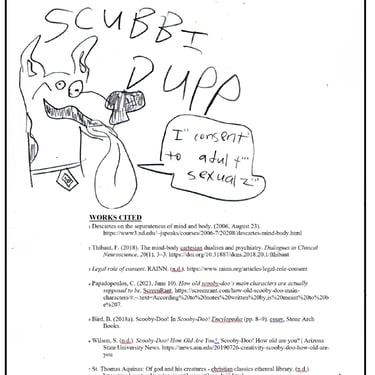 SCUBBI
DUPP
I "consent"
to adult"
sexualz"
WORKS CITED
Descartes on the separateness of mind and body. (2006, August 23).
Thibaut, F. (2018). The mind-body cartesian dualism and psychiatry. Dialogues in Clinical
Neuroscience, 20(1), 3–3. https://doi.org/10.31887/dcns.2018.20.1/fthibaut
Legal role of consent. RAINN. (n.d.). https://www.rainn.org/articles/legal-role-consent
Papadopoulos, C. (2023, June 10). How old scooby-doo's main characters are actually
supposed to be. ScreenRant. https://screenrant.com/how-old-scooby-doo-main-
Bird, B. (2018a). Scooby-Doo! In Scooby-Doo! Encyclopedia (pp. 8–9). essay, Stone Arch
Books.
Wilson, S. (n.d.). Scooby-Doo! How Old Are You?. Scooby-Doo! How old are you? | Arizona
State University News. https://news.asu.edu/20190726-creativity-scooby-doo-how-old-are-
you
St. Thomas Aquinas: Of god and his creatures - christian classics ethereal library. (n.d.).